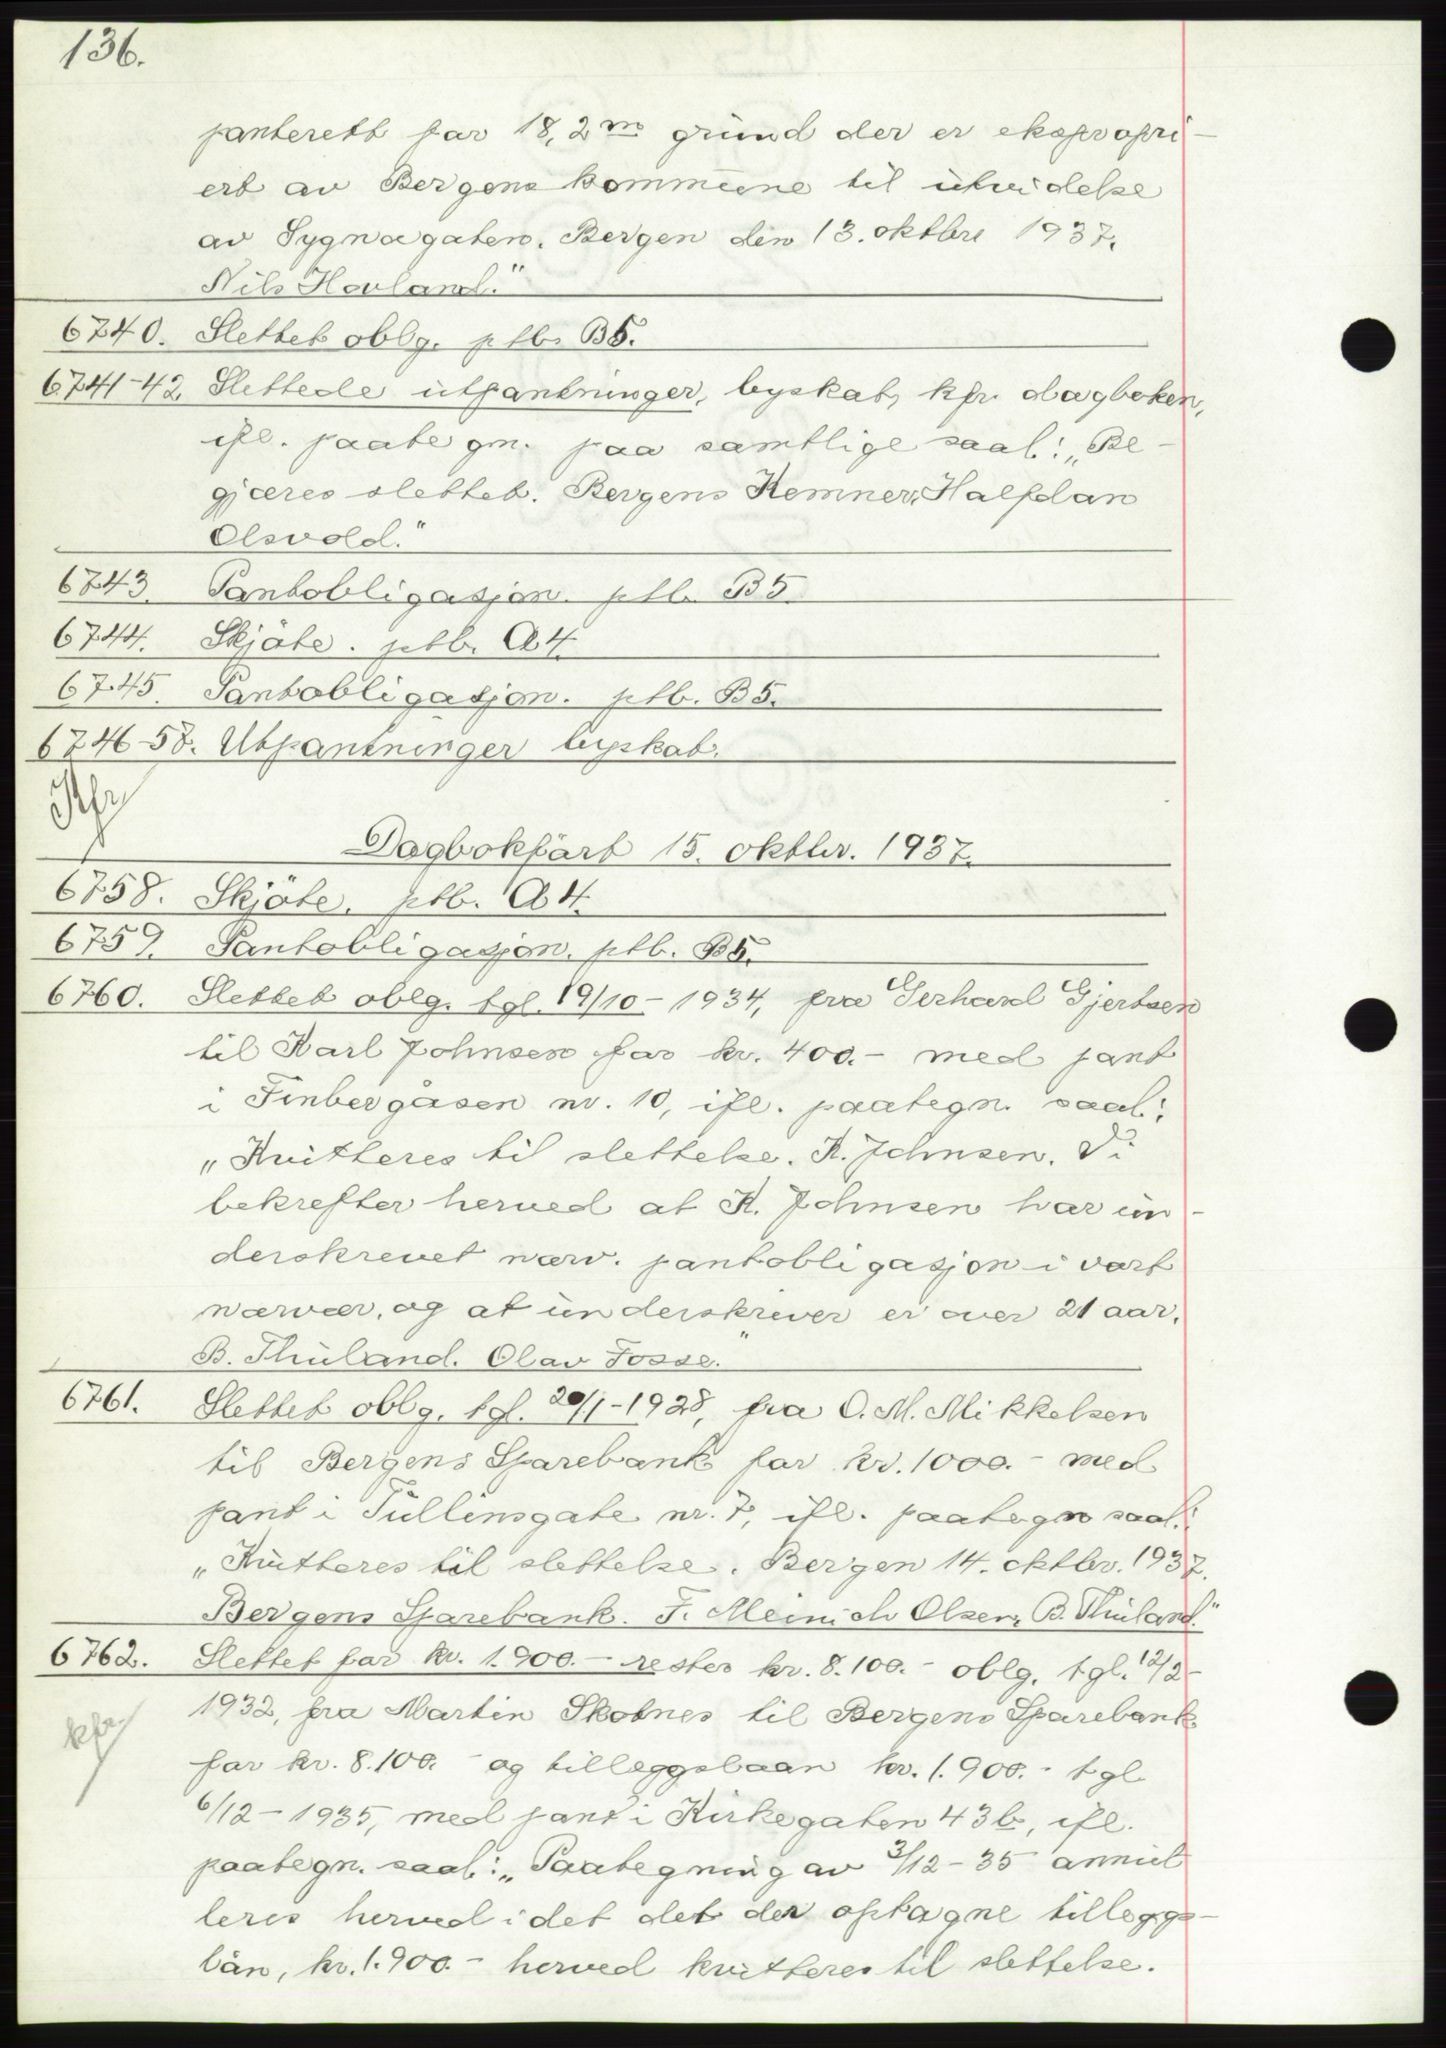 136.
panterett for 18,2 m grund der er ekspropri-
ert av Bergens kommune til utvidelse
av Sygnagaten. Bergen den 13. oktbr. 1937.
Nils Hovland."
6740. Slettet oblg. ptb. B5.
6741-42. Slettede utpantninger, byskat, kfr. dagboken,
ifl. paategn. paa samtlige saal.: „Be-
gjæres slettet. Bergens Kemner, Halfdan
Olsvold."
6743. Pantobligasjon. ptb. B5.
6744. Skjöte. ptb. A4.
6745. Pantobligasjon. ptb. B5.
6746-57. Utpantninger byskat.
Kfr
Dagbokfört 15. oktbr. 1937.
6758. Skjöte. ptb. A4.
6759. Pantobligasjon. ptb. B5.
6760. Slettet oblg. tgl. 19/10-1934, fra Gerhard Gjertsen
til Karl Johnsen for kr. 400.- med pant
i Finbergåsen nr. 10, ifl. paategn. saal.:
„Kvitteres til slettelse. K. Johnsen. Vi
bekrefter herved at K. Johnsen har un-
derskrevet nærv. pantobligasjon i vort
nærvær, og at underskriver er over 21 aar.
B. Thuland. Olav Fosse."
6761. Slettet oblg. tgl. 20/1-1928, fra O. M. Mikkelsen
til Bergens Sparebank for kr. 1000.- med
pant i Tullinsgate nr. 7, ifl. paategn saal.:
„Kvitteres til slettelse. Bergen 14. oktbr. 1937.
Bergens Sparebank. F. Meinich Olsen. B. Thuland."
6762. Slettet for kr. 1.900.- rester kr. 8.100.- oblg. tgl. 12/2-
1932, fra Martin Skotnes til Bergens Sparebank
kfr.
for kr. 8.100.- og tilleggslaan kr. 1.900.- tgl.
6/12-1935, med pant i Kirkegaten 43b, ifl.
paategn. saal.: „Paategning av 3/12-35 annul
leres herved idet det der optagne tilleggs-
lån, kr. 1.900.- herved kvitteres til slettelse.